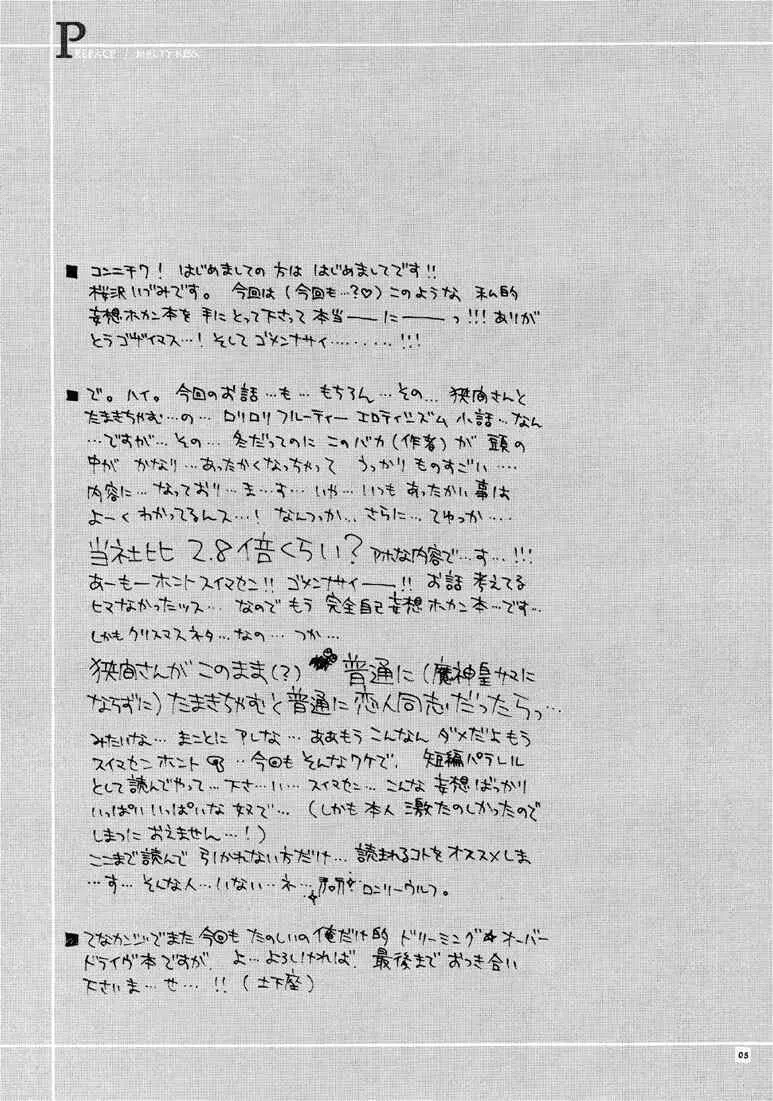 PREFACE / MELTY KISS
■ コンニチワ! はじめましての方は はじめましてです!!
桜沢いづみです。 今回は(今回も…?♡)このような 私的
妄想ホカン本を 手にとって下さって 本当――に――っ!!! ありが
とうゴザイマス…! そして ゴメンナサイ………!!!
■ で。ハイ。今回のお話…も… もちろん…その… 狭間さんと
たまきちゃむ…の… ロリロリ フルーティー エロティシズム 小話…なん
…ですが… その… 冬だってのに このバカ(作者)が 頭の
中が かなり…あったかくなっちゃって うっかり ものすごい…
内容に… なっており… ま…す… いや… いつも あったかい 事は
よーく わかってるんス…! なんつっか… さらに… てゆっか…
当社比 2.8倍くらい? アホな内容で…す…!!!
あーもーホント スイマセン!! ゴメンナサイ――!! お話 考えてる
ヒマなかったッス… なのでもう 完全自己妄想ホカン本…です…
しかもクリスマスネタ…なの… つか…
狭間さんが このまま(?) 普通に(魔神皇サマに
ならずに)たまきちゃむと普通に恋人同志だったらっ…
みたいな… まことに アレな… ああもう こんなん ダメだよ もう
スイマセンホント …今回も そんなワケで、 短編パラレル
として 読んでやって…下さ…い… スイマセン… こんな 妄想ばっかり
いっぱい いっぱいな 奴で… (しかも 本人 激たのしかったので
しまつに おえません…!)
ここまで読んで 引かれない方だけ… 読まれるコトを オススメしま
…す… そんな人…いない…ネ… ロンリーウルフ。
■ てなカンジでまた 今回も たのしいの 俺だけ的 ドリーミング☆オーバー
ドライヴ本ですが、よ…よろしければ、最後まで おつき合い
下さいま…せ…!! (土下座)
05